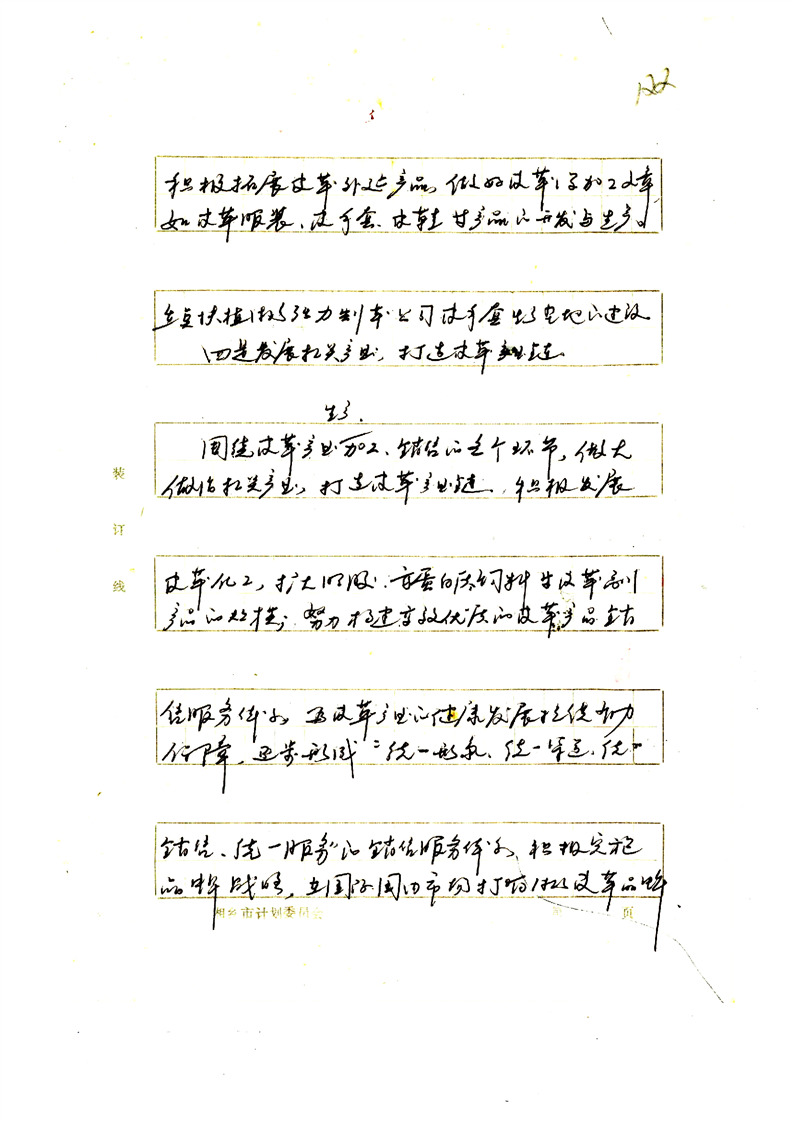 积极拓展皮革外延产品，做好皮革深加工文章
如皮革服装、皮手套、皮鞋等产品的开发与生产。
重点扶植 强力制革公司皮手套生产基地的建设
四是发展相关产业，打造皮革产业链。
生产、
围绕皮革产业加工、销售的各个环节，做大
做活相关产业，打造皮革产业链。积极发展
皮革化工，扩大明胶、高蛋白质饲料等皮革副
产品的规模；努力构建高效优质的皮革产品销
售服务体系，为皮革产业的健康发展提供有力
保障，逐步形成“统一形象、统一 、统一
销售、统一服务”的销售服务体系，积极实施
品牌战略，在国际国内市场打响 皮革品牌.
装
订
线
湘乡市计划委员会
第 页